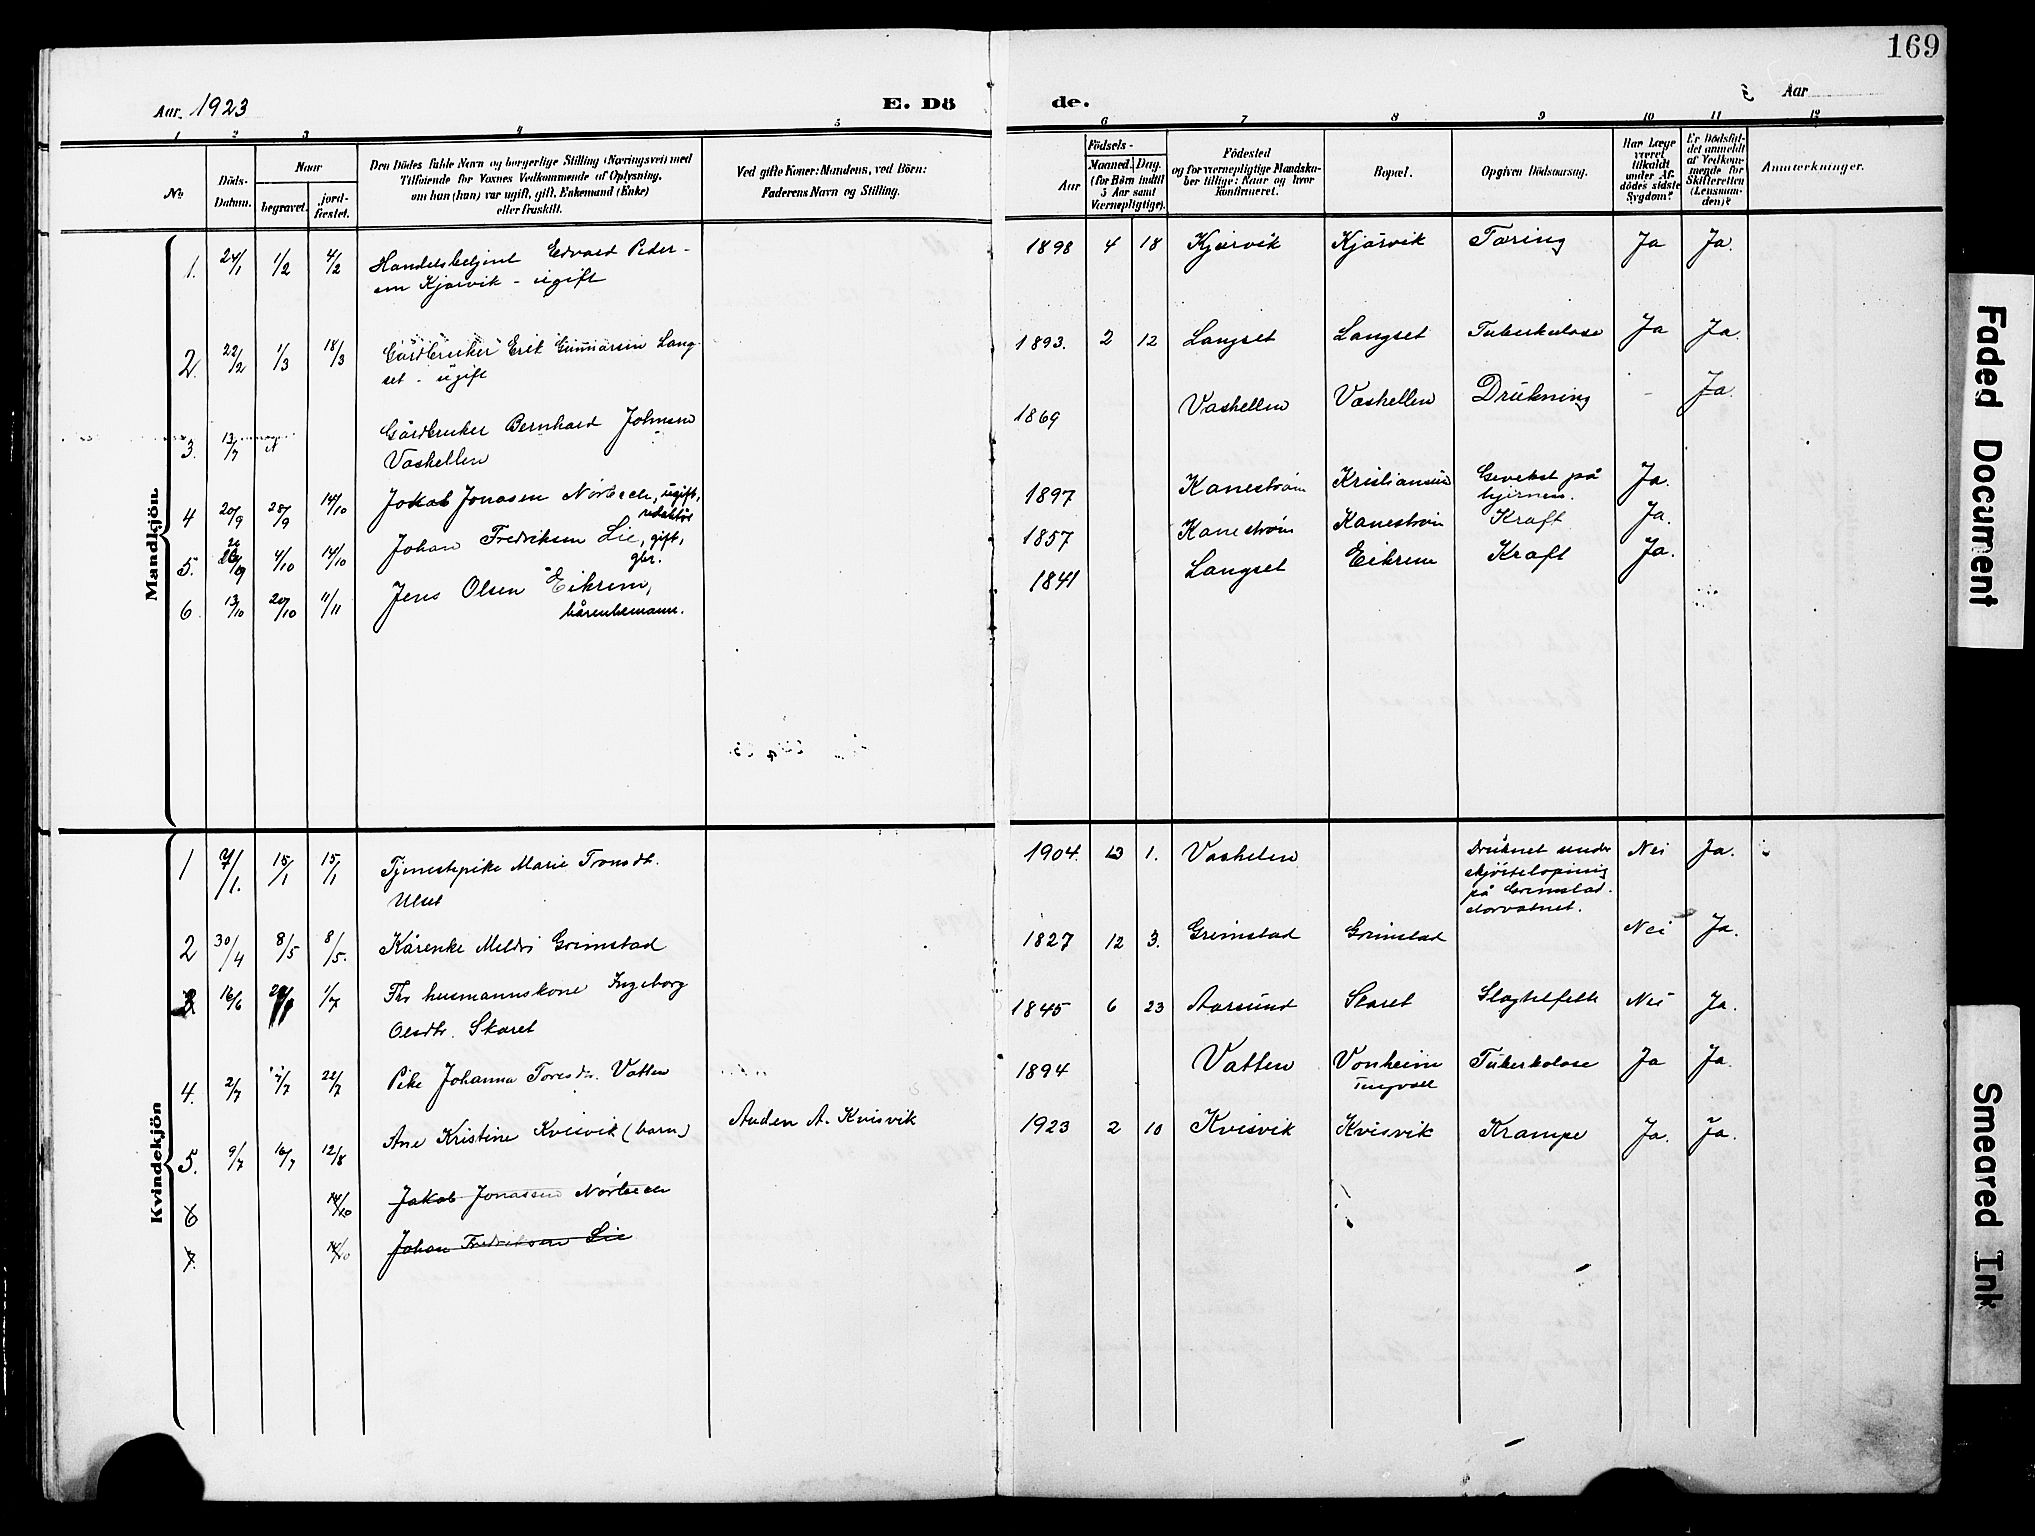 169
Aar. 1923
E. Dö
de.
Aar
1 2 3 4 5
6 7 8 9 10 11 12
No
Döds-
Datum.
Naar
begravet.
jord-
fæstet.
Den Dödes fulde Navn og borgerlige Stilling (Næringsvei) med
Tilföiende for Voxnes Vedkommende af Oplysning,
om han (hun) var ugift, gift, Enkemand (Enke)
eller fraskilt.
Ved gifte Koner: Mandens, ved Börn:
Faderens Navn og Stilling.
Födsels-
Aar
Maaned.
Dag.
(for Börn indtil
5 Aar samt
Værnepligtige).
Födested
og for værnepligtige Mandska-
ber tillige: Naar og hvor
konfirmeret.
Bopæl.
Opgiven Dödsaarsag.
Har Læge
været
tilkaldt
under Af-
dödes sidste
Sygdom?
Er Dödsfal-
det anmeldt
af Vedkom-
mende for
Skifteretten
(Lensman-
den)?
Anmærkninger.
Mandkjön.
1. 24/1 1/2 4/2 Handelsbetjent Edvard Peder-
sen Kjørvik - ugift
1898 4 18 Kjørvik Kjørvik Tæring Ja Ja.
2. 22/2 1/3 18/3 Gårdbruker Erik Gunnarsen Lang-
set - ugift
1893. 2 12 Langset Langset Tuberkulose Ja Ja.
3. 13/7 Gårdbruker Bernhard Johnsen
Vashellen
1869 Vashellen Vashellen Drukning - Ja.
4 20/9 28/9 14/10 Jakob Jonasen Nørbech, ugift,
redaktør
1897 Kanestrøm Kristiansun Gevekst på
hjernen. Ja.
5. 26/9 4/10 14/10 Johan Fredriksen Lie, gift,
gbr.
1857 Kanestrøm Kanestrøm Kraft Ja.
6. 13/10 20/10 11/11 Jens Olsen Eikrem,
kårenkemann.
1841 Langset Eikrem Kraft Ja.
Kvindekjön
1 7/1. 15/1 15/1 Tjenestepike Marie Tronsdt.
Ulset
1904. 12 1. Vashelen Druknet under
skjøiteløpning
på Grimstad-
dorvatnet. Nei Ja.
2 30/4 8/5 8/5. Kårenke Meldri Grimstad
1827 12 3. Grimstad Grimstad Nei Ja.
3 16/6 1/7 Fhv husmannskone Ingeborg
Olsdtr. Skaret
1845 6 23 Aarsund Skaret Slagtilfelle Nei Ja.
4. 2/7 22/7 Pike Johanna Toresdtr. Vatten
1894 Vatten Vonheim
Tingvoll Tuberkolose Ja Ja.
5. 9/7 16/7 12/8 Ane Kristine Kvisvik (barn) Auden A. Kvisvik
1923 2 10 Kvisvik Kvisvik Krampe Ja. Ja.
6 14/10 Jakob Jonassen Nørbech
7. 14/10 Johan Fredriksen Lie
Faded Document
Smeared Ink